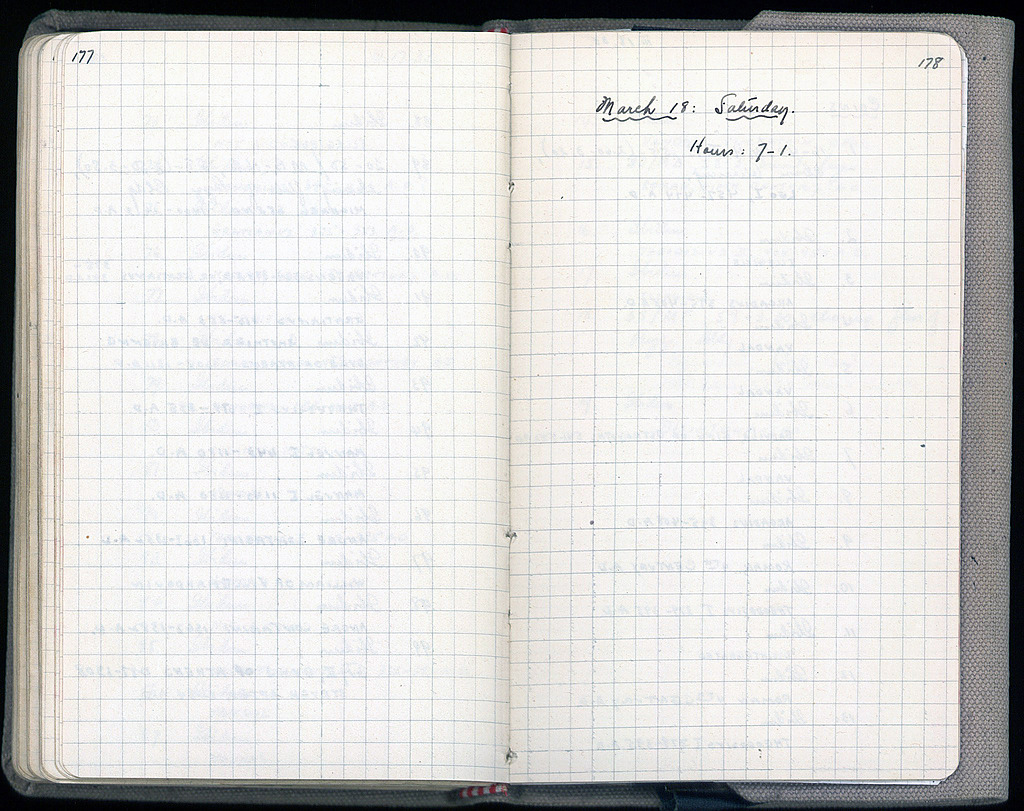 177
178
March 18: Saturday.
Hours: 7-1.